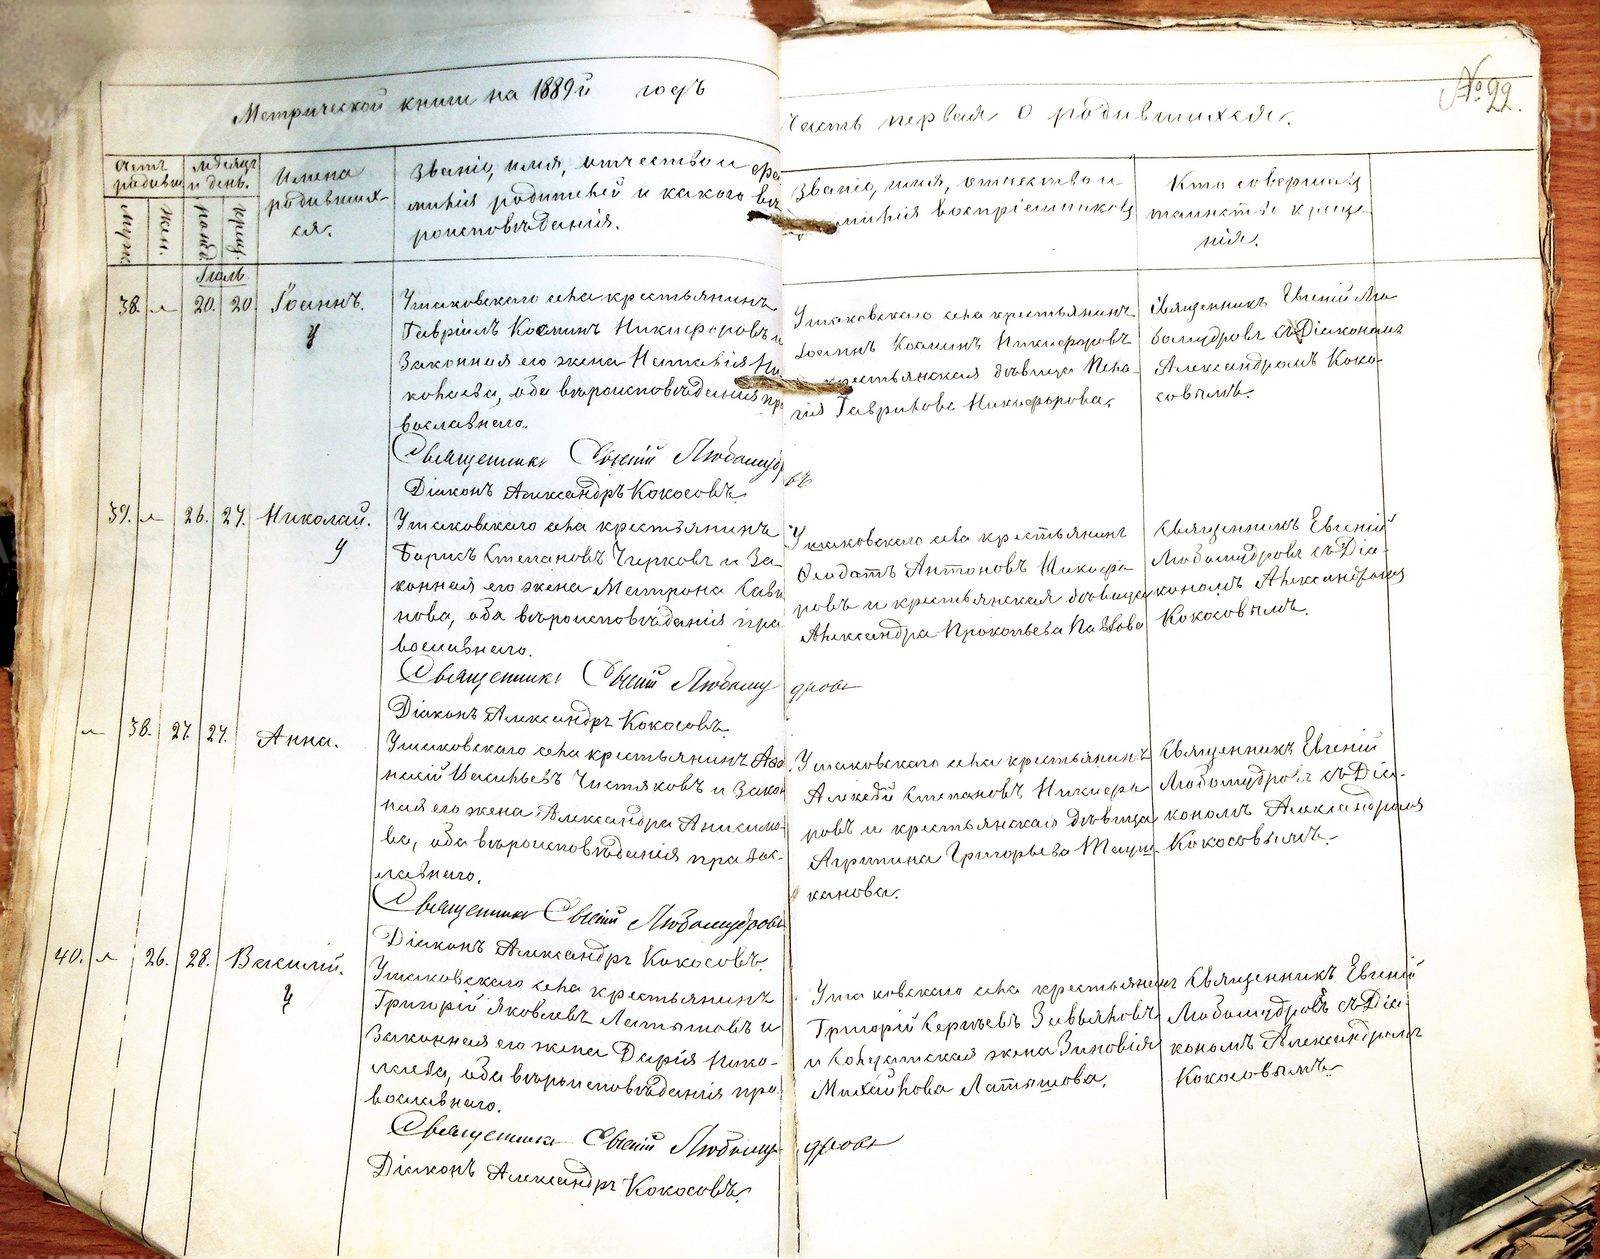 Метрической книги на 1889й годъ
Часть первая о родившихся.
№ 22.
Счетъ родивш.
муж.
жен.
Мѣсяцъ и день.
рожд.
крещ.
Имена
родивших-
ся.
Званіе, имя, отчество и фа
милія родителей и какого вѣ
роисповѣданія.
Званіе, имя, отчество и
милія воспріемниковъ
Кто совершалъ
таинство креще-
нія.
Іюль
38.
20.
20
Іоаннъ.
у
Ушаковского села крестьянинъ
Гавріилъ Косминъ Никифоровъ и
законная его жена Наталія Ни
колаева, оба вѣроисповѣданія пра
вославнаго.
Священникъ Евгеній Любомудр
овъ
Діаконъ Александръ Кокосовъ.
Ушаковского села крестьянинъ
Іоаннъ Косминъ Никифоровъ
крестьянская дѣвица Пела-
гія Гаврилова Никифорова.
Священникъ Евгеній Лю-
бомудровъ съ Діакономъ
Александромъ Коко-
совымъ.
39.
26.
27.
Николай.
у
Ушаковского села крестьянинъ
Борисъ Степановъ Чирковъ и за-
конная его жена Матрона Сави
нова, оба вѣроисповѣданія пра
вославнаго.
Священникъ Евгеній Любому
дровъ
Діаконъ Александръ Кокосовъ.
Ушаковского села крестьянинъ
Феодотъ Антоновъ Никифо
ровъ и крестьянская дѣвица
Александра Прокопьева Павлова
Священникъ Евгеній
Любомудровъ съ Діа-
кономъ Александромъ
Кокосовымъ.
38.
27.
27.
Анна.
Ушаковского села крестьянинъ Афо
насій Васильевъ Чистяковъ и закон
ная его жена Александра Анисимо-
ва, оба вѣроисповѣданія правос-
лавнаго.
Священникъ Евгеній Любомудровъ
Діаконъ Александръ Кокосовъ.
Ушаковского села крестьянинъ
Алексѣй Степановъ Никифо
ровъ и крестьянская дѣвица
Агрипина Григорьева
канова.
Священникъ Евгеній
Любомудровъ съ Діа-
кономъ Александромъ
Кокосовымъ.
40.
26.
28.
Василій.
у
Ушаковского села крестьянинъ
Григорій Яковлевъ Латышовъ и
законная его жена Дарія Нико-
лаева, оба вѣроисповѣданія пра
вославнаго.
Священникъ Евгеній Любому
дровъ
Діаконъ Александръ Кокосовъ.
Ушаковского села крестьянинъ
Григорій Сергѣевъ Завьяловъ
и солдатская жена Зиновія
Михайлова Латышова.
Священникъ Евгеній
Любомудровъ съ Діа-
кономъ Александромъ
Кокосовымъ.